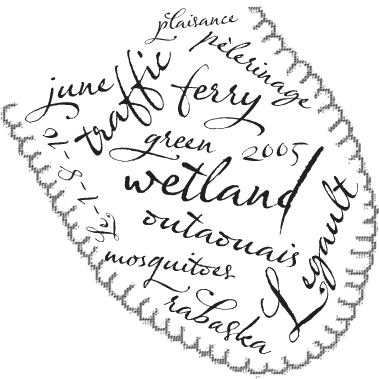 plaisance
pèlerinage
june
traffic
ferry
green 2005
wetland
outaouais
mosquitoes
rabaska
Legault